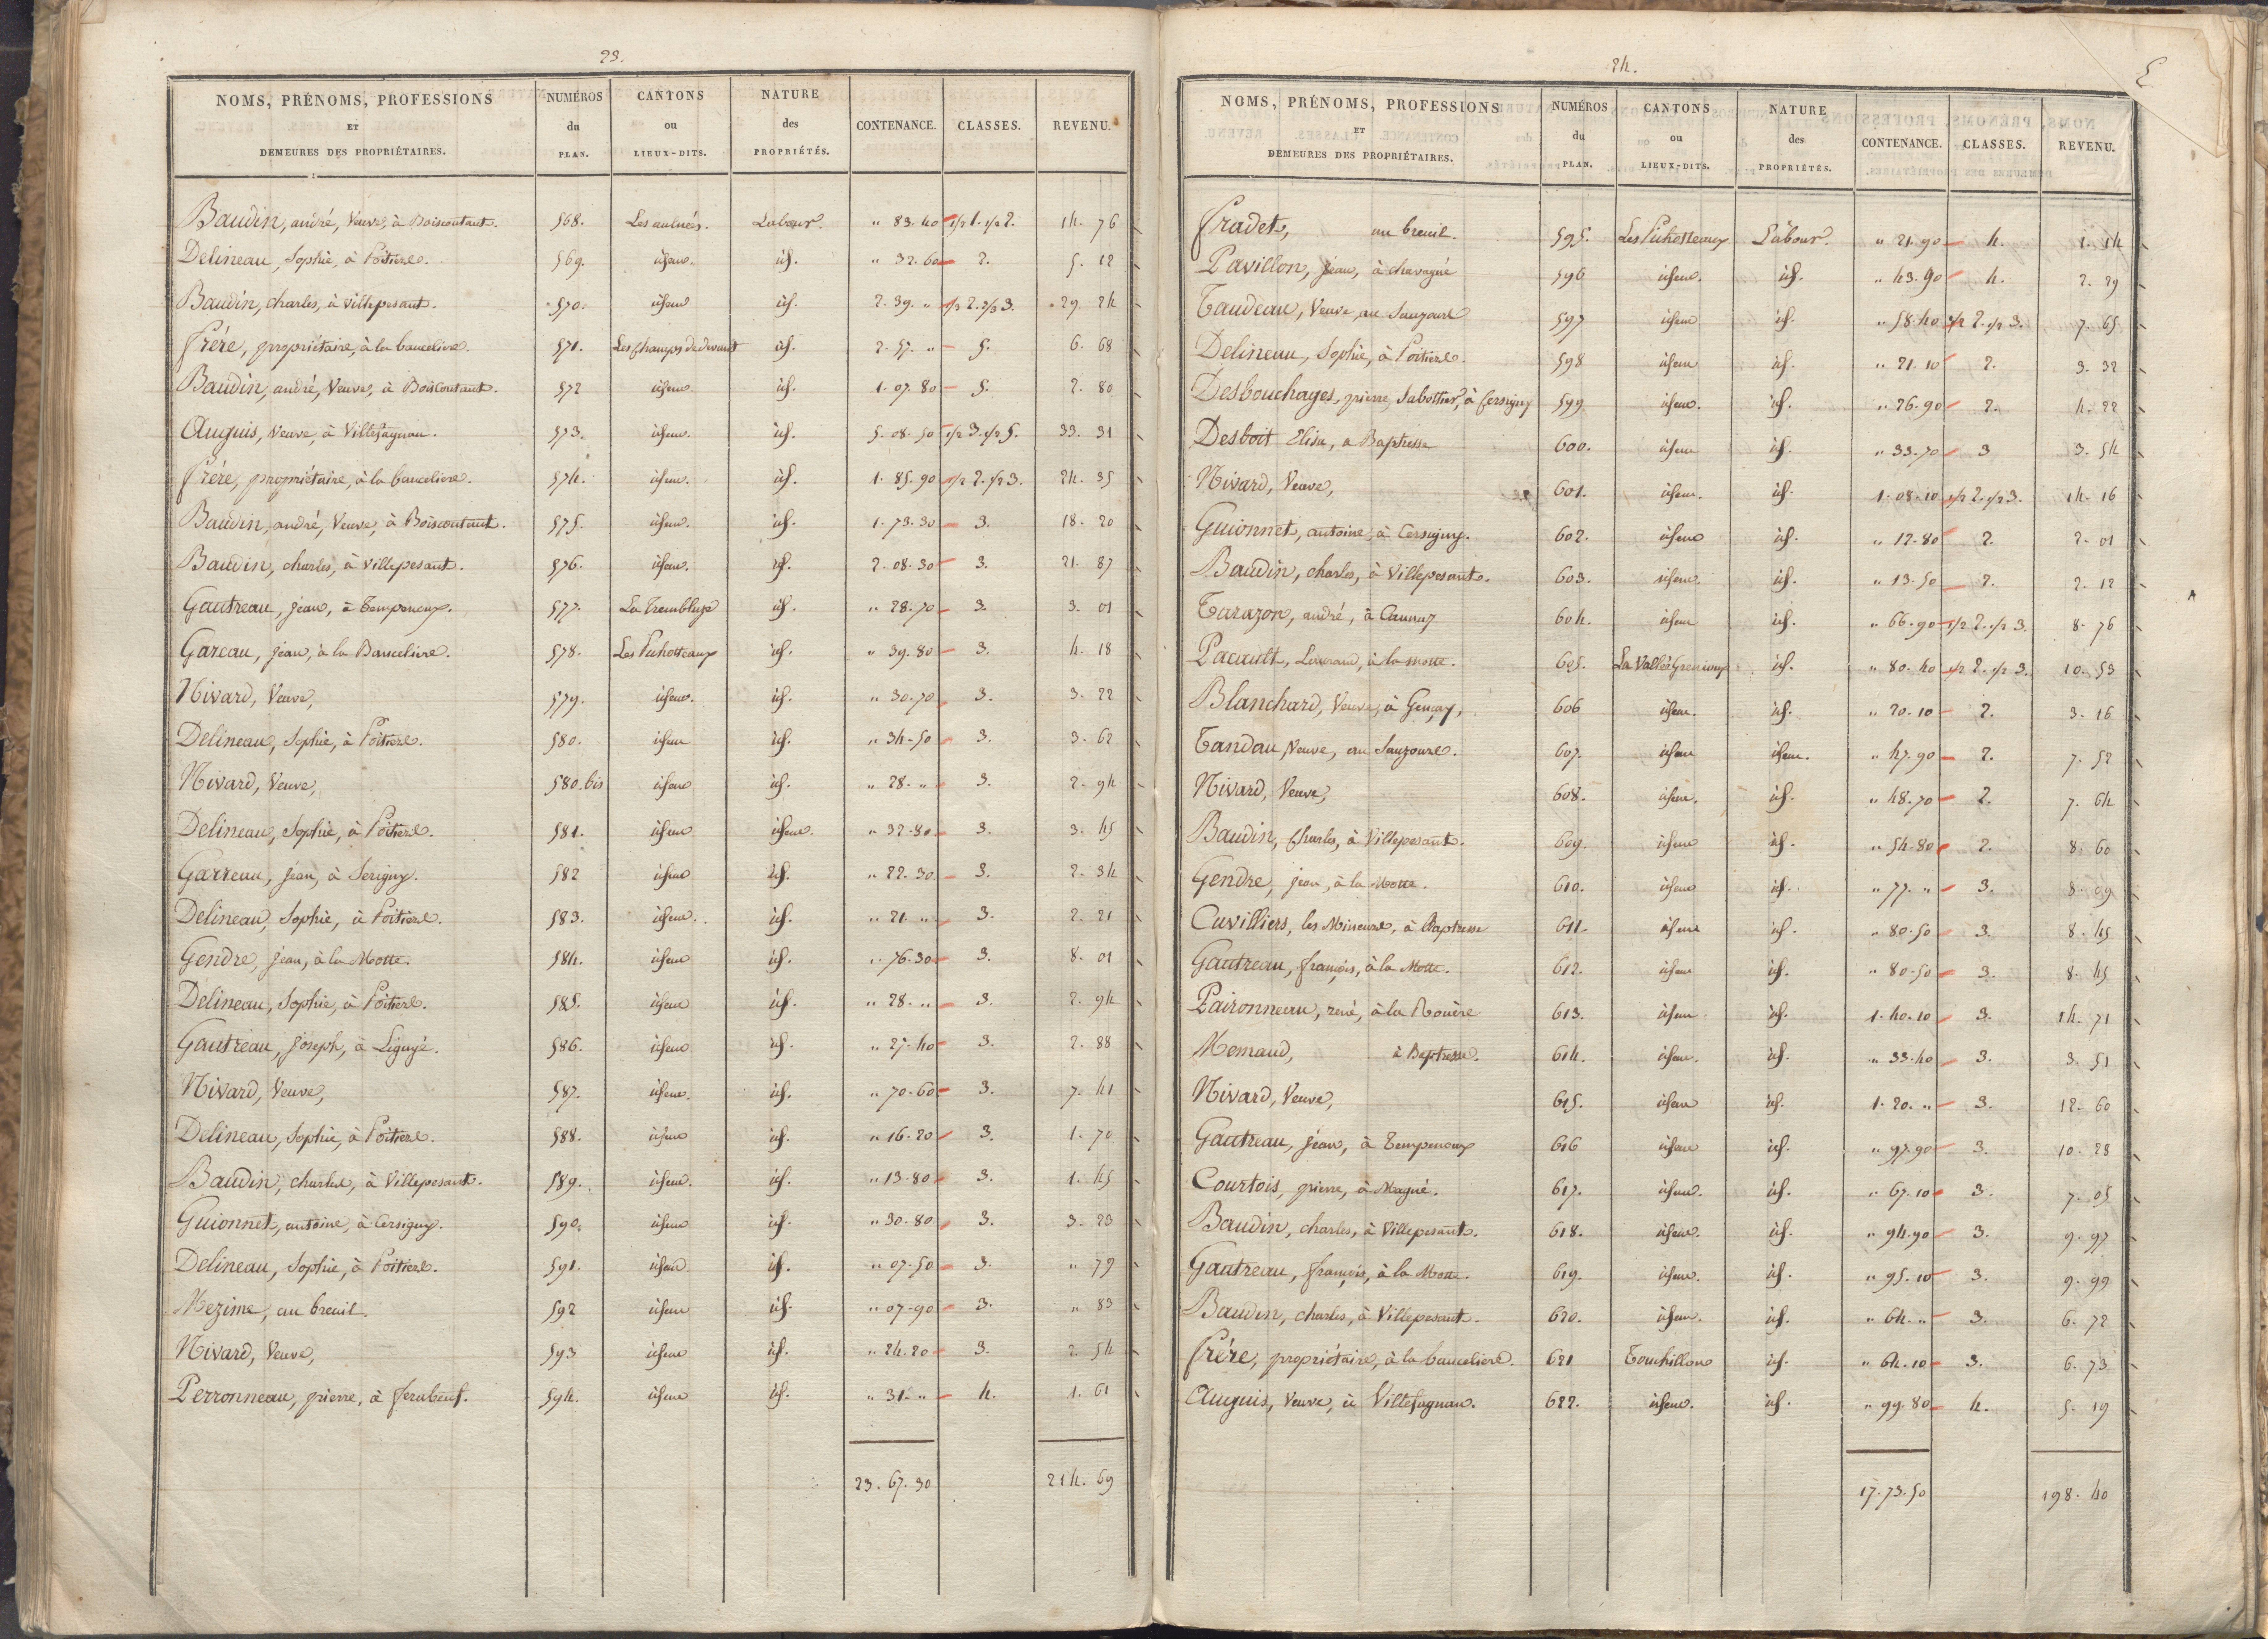 23.
NOMS, PRÉNOMS, PROFESSIONS ET DEMEURES DES PROPRIÉTAIRES. NUMÉROS du PLAN. CANTONS ou LIEUX-DITS. NATURE des PROPRIÉTÉS. CONTENANCE. CLASSES. REVENU.
Baudin, andré, Veuve, à Boiscoutant. 568. Les aulnés. Labour. " 83. 40 1/2 1. 1/2 2. 14. 76
Delineau, Sophie, à Poitiers. 569. idem. id. " 32. 60 2. 5. 12
Baudin, charles, à Villepesant. 570. idem id. 2. 39. " 1/3 2. 2/3 3. 29. 24
frère, propriétaire, à la bauceliere. 571. Les champs de devant id. 2. 57. " 5. 6. 68
Baudin, andré, Veuve, à Boiscoutant. 572 idem id. 1. 07. 80 5. 2. 80
Auguis, Veuve, à Villefagnan. 573. idem. id. 5. 08. 50 1/2 3. 1/2 5. 33. 31
frère, propriétaire, à la bauceliere. 574. idem. id. 1. 85. 90 1/2 2. 1/2 3. 24. 35
Baudin, andré, Veuve, à Boiscoutant. 575. idem. id. 1. 73. 30 3. 18. 20
Baudin, charles, à Villepesant. 576. idem. id. 2. 08. 30 3. 21. 87
Gautreau, jean, à Temponeux. 577. La Tremblaye id. " 28. 70 3. 3. 01
Gareau, jean, à la Bauceliere. 578. Les Pichotteaux id. " 39. 80 3. 4. 18
Nivard, Veuve, 579. idem. id. " 30. 70 3. 3. 22
Delineau, Sophie, à Poitiers. 580. idem id. " 34. 50 3. 3. 62
Nivard, Veuve, 580. bis idem id. " 28. " 3. 2. 94
Delineau, Sophie, à Poitiers. 581. idem idem. " 32. 80 3. 3. 45
Garreau, jean, à Serigny. 582 idem id. " 22. 30 3. 2. 34
Delineau, Sophie, à Poitiers. 583. idem. id. " 21. " 3. 2. 21
Gendre, jean, à la Motte. 584. idem id. " 76. 30 3. 8. 01
Delineau, Sophie, à Poitiers. 585. idem id. " 28. " 3. 2. 94
Gautreau, joseph, à Ligugé. 586. idem id. " 27. 40 3. 2. 88
Nivard, Veuve, 587. idem. id. " 70. 60 3. 7. 41
Delineau, Sophie, à Poitiers. 588. idem id. " 16. 20 3. 1. 70
Baudin, charles, à Villepesant. 589. idem. id. " 13. 80 3. 1. 45
Guionnet, antoine, à Cersigny. 590. idem id. " 30. 80 3. 3. 23
Delineau, Sophie, à Poitiers. 591. idem id. " 07. 50 3. " 79
Mezime, au breuil. 592 idem id. " 07. 90 3. " 83
Nivard, Veuve, 593 idem id. " 24. 20 3. 2. 54
Perronneau, pierre, à ferabeuf. 594. idem id. " 31. " 4. 1. 61
23. 67. 30 214. 69
24.
NOMS, PRÉNOMS, PROFESSIONS ET DEMEURES DES PROPRIÉTAIRES. NUMÉROS du PLAN. CANTONS ou LIEUX-DITS. NATURE des PROPRIÉTÉS. CONTENANCE. CLASSES. REVENU.
fradet, au breuil. 595. Les Pichotteaux Labour. " 21. 90 4. 1. 14
Pavillon, jean, à chavagné 596 idem. id. " 43. 90 4. 2. 29
Taudeau, Veuve, au Sauzours 597 idem id. " 58. 40 1/2 2. 1/2 3. 7. 65
Delineau, Sophie, à Poitiers. 598 idem id. " 21. 10 2. 3. 32
Desbouchages, pierre, Sabottier, à Cersigny 599 idem. id. " 26. 90 2. 4. 22
Desboit Elisa, a Baptresse 600. idem id. " 33. 70 3 3. 54
Nivard, Veuve, 601. idem. id. 1. 08. 10 1/2 2. 1/2 3. 14. 16
Guionnet, antoine, à Cersigny. 602. idem id. " 12. 80 2. 2. 01
Baudin, charles, à Villepesant. 603. idem. id. " 13. 50 2. 2. 12
Tarazon, andré, à Caunay 604. idem id. " 66. 90 1/2 2. 1/2 3. 8. 76
Pacault, à la motte. 605. La Vallée id. " 80. 40 1/2 2. 1/2 3. 10. 53
Blanchard, Veuve, à Gençay, 606 idem. id. " 20. 10 2. 3. 16
Tandau, Veuve, au Sauzours. 607. idem idem. " 47. 90 2. 7. 52
Nivard, Veuve, 608. idem. id. " 48. 70 2. 7. 64
Baudin, Charles, à Villepesant. 609. idem id. " 54. 80 2. 8. 60
Gendre, jean, à la Motte. 610. idem id. " 77. " 3. 8. 09
Cuvilliers, les Mineurs, à Baptresse 611. idem id. " 80. 50 3. 8. 45
Gautreau, françois, à la Motte. 612. idem id. " 80. 50 3. 8. 45
Paironneau, rené, à la Rouère 613. idem id. 1. 40. 10 3. 14. 71
Memaud, à Baptresse. 614. idem. id. " 33. 40 3. 3. 51
Nivard, Veuve, 615. idem id. 1. 20. " 3. 12. 60
Gautreau, jean, à Temponeux 616 idem id. " 97. 90 3. 10. 28
Courtois, pierre, à Magné. 617. idem. id. " 67. 10 3. 7. 05
Baudin, charles, à Villepesant. 618. idem. id. " 94. 90 3. 9. 97
Gautreau, françois, à la Motte. 619. idem. id. " 95. 10 3. 9. 99
Baudin, charles, à Villepesant. 620. idem. id. " 64. " 3. 6. 72
frère, propriétaire, à la bauceliere. 621 Touchillons id. " 64. 10 3. 6. 73
Auguis, Veuve, à Villefagnan. 622. idem. id. " 99. 80 4. 5. 19
17. 73. 50 198. 40